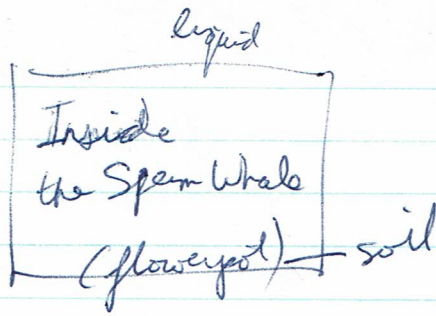 liquid
Inside
the Sperm Whale
(flowerpot) — soil